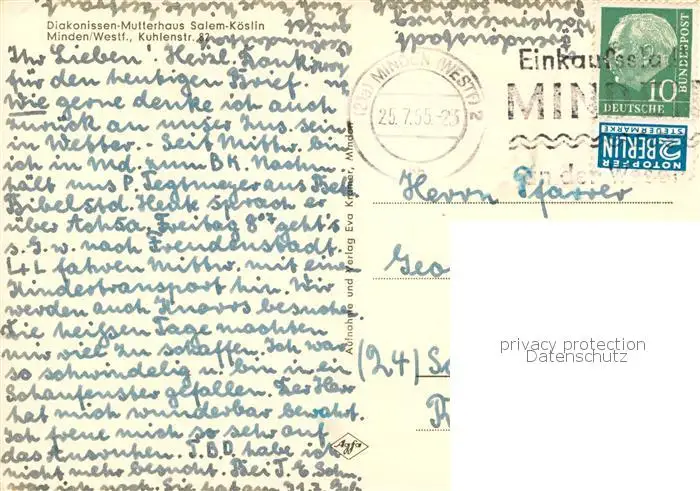 Diakonissen-Mutterhaus Salem-Köslin
Minden/Westf., Kuhlenstr. 82
Ihr Lieben! Herzl. Dank
für den heutigen Brief
wie gerne denke ich auch
zurück an unser Zus. sein
in Wetter. Seit Mittw. bin
ich in Md. zum BK. Nachm.
hält uns P. Tegtmeyer aus Bethel
Bibelstd. Heute sprach er
über Ach5a. Freitag 8⁰⁷ geht's
s. G. w. nach Freudenstadt.
L+L fahren Mittw. mit ein
Kindertransport hin. Wir
werden auch Knorrs besuche
Die heißen Tage machten
mir viel zu schaffen. Ich war
so schwindelig u. bin in ein
Schaufenster gefallen. Der Herr
hat mich wunderbar bewahrt.
Ich freue mich so sehr auf
das Ausruhen. T.B.D. habe ich
nicht mehr besucht. Bei T. E. Schw.
war ich noch. Sie hat am 31.7. Geb.
Aufnahme und Verlag Eva Kramer, Minden
Agfa
(21a) MINDEN (WESTF) 2
25.7.55.-23
Einkaufssta
MIND
an der Weser
DEUTSCHE BUNDESPOST
10
NOTOPFER
2 BERLIN
STEUERMARKE
Herrn Pfarrer
Geo
(24)
privacy protection
Datenschutz